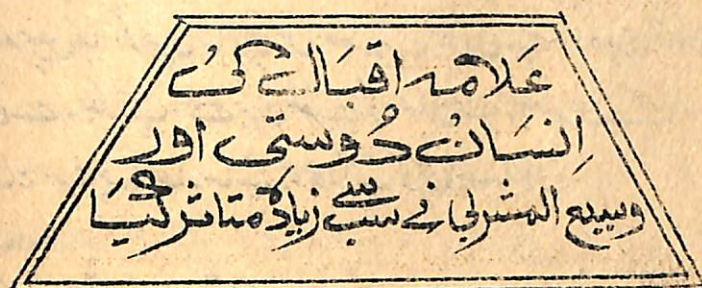 علامہ اقبال کی
اِنسان دُوستی اور
وسیع المشربی نے سب سے زیادہ متاثر کیا